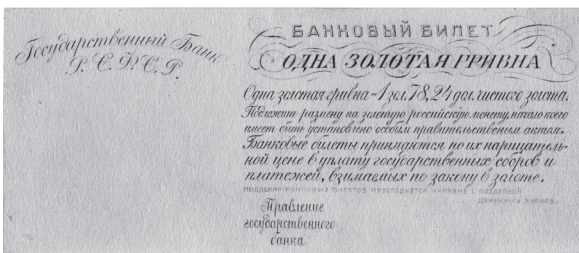 Государственный Банк
Р. С. Ф. С. Р.
БАНКОВЫЙ БИЛЕТ
ОДНА ЗОЛОТАЯ ГРИВНА
Одна золотая гривна = 1 зол. 78,24 дол. чистого золота.
Подлежит размену на золотую российскую монету, начало коего
имеет быть установлено особым правительственным актом.
Банковые билеты принимаются по их нарицатель-
ной цене в уплату государственных сборов и
платежей, взимаемых по закону в золоте.
БИЛЕТОВ ПРЕСЛЕДУЕТСЯ НАРАВНЕ С ПОДДЕЛКОЙ
ДЕНЕЖНЫХ ЗНАКОВ.
Правление
государственного
банка.